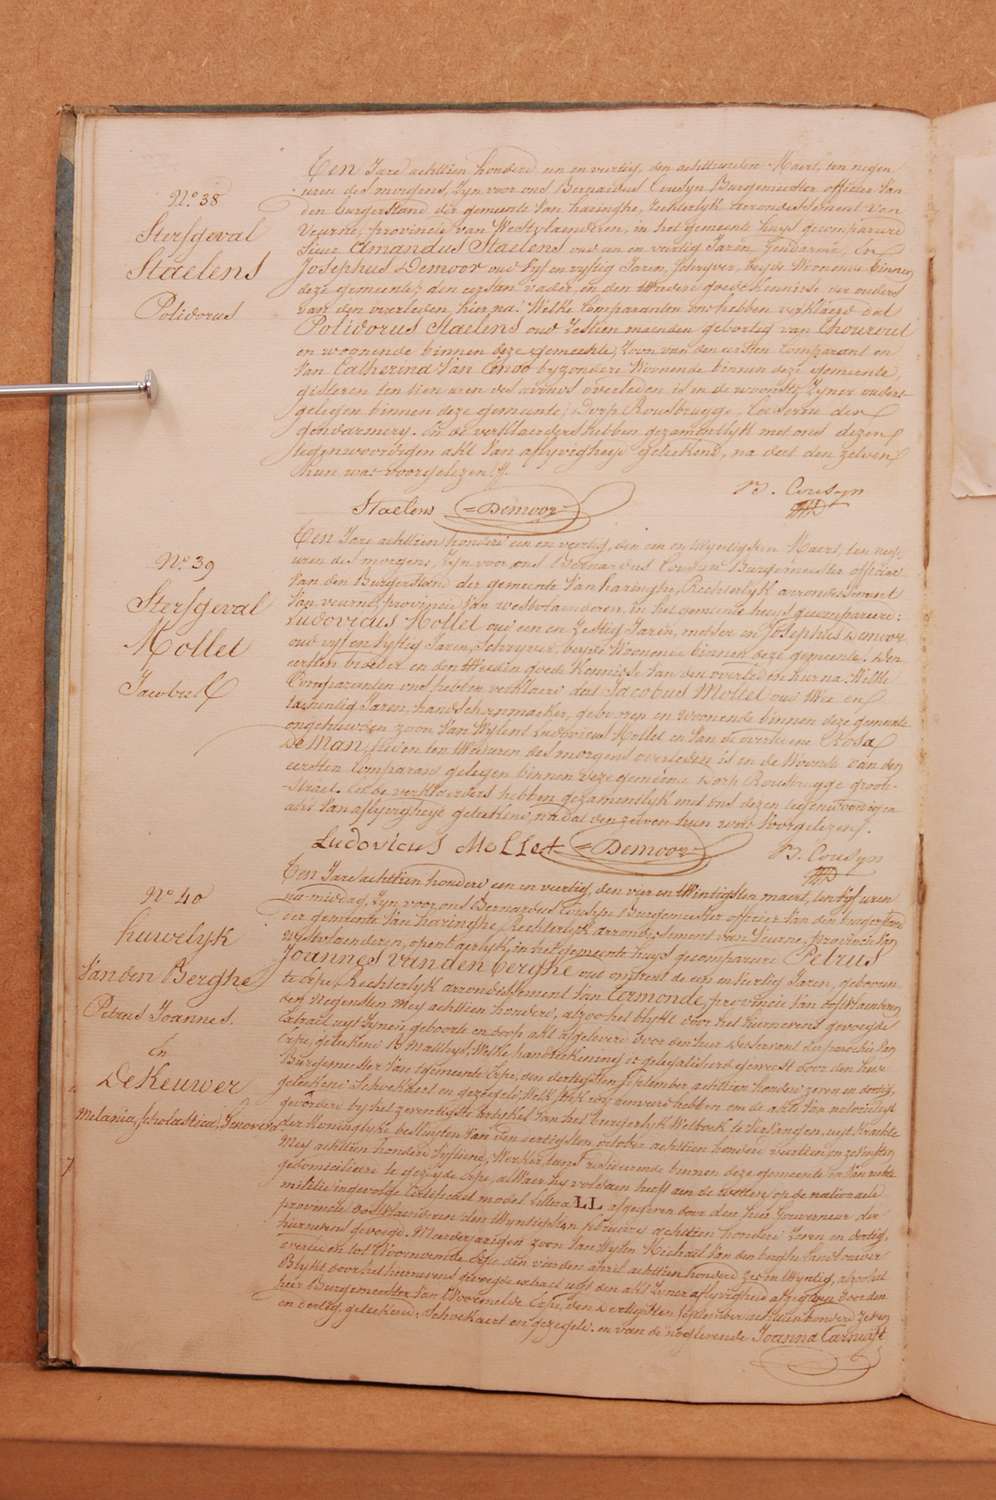 N.º 38
Sterfgeval
Staelens
Polidorus
Ten Jare achttien honderd een en veertig, den achttienden Maert, ten negen
uren des morgens, Zyn voor ons Bernardus Cousyn Burgemeester officier Van
den burgerstand der gemeente Van haringhe, Rechterlyk arrondissement Van
Veurne, provincie van Westvlaenderen, in het gemeente huys gecompareerd
Sieur Amandus Staelens oud een en veertig Jaren Gendarme, En
Josephus Demoor oud Vyf en vyftig Jaren, Schryver, beyde Woonende binnen
deze gemeente; den eersten vader en den tweeden goede kennisse der ouders
van den overleden hier na: Welke Comparanten ons hebben verklaerd dat
Polidorus Staelens oud Zestien maenden geboortig van Thourout
en woonende binnen deze gemeente, Zoon van den eersten Comparant en
Van Catherina Van Enoo byzondere Woonende binnen deze gemeente
gisteren ten tien uren des avonds overleden is in de woonste Zyner ouders
gelegen binnen deze gemeente, Dorp Rousbrugge, Caserne der
gendarmery. En de verklaerders hebben gezamentlyk met ons dezen
tegenwoordigen akt Van aflyvigheyd geteekend, na dat den zelven
hun was voorgelezen.
Staelens Demoor B. Cousyn
N.º 39
Sterfgeval
Mollet
Jacobus
Ten Jare achttien honderd een en veertig, den een en twyntigsten Maert, ten negen
uren des morgens, Zyn voor ons Bernardus Cousyn Burgemeester officier
Van den Burgerstand der gemeente Van haringhe, Rechterlyk arrondissement
Van veurne, provincie Van westvlaenderen, in het gemeente huys gecompareerd:
Ludovicus Mollet oud een en Zestig Jaren, metser en Josephus Demoor
oud vyf en vyftig Jaren, Schryver, beyde Woonende binnen deze gemeente. Den
eersten broeder en den tweeden goede Kennisse Van den overleden hier na. Welke
Comparanten ons hebben verklaerd dat Jacobus Mollet oud drie en
tachentig Jaren, handschoenmaeker, geboren en woonende binnen deze gemeente
ongehuwden zoon Van Wylent Ludovicus Mollet en Van de overledene Rosa
De Man, heden ten twee uren des morgens overleden is in de Woonste van den
eersten Comparant gelegen binnen deze gemeente Dorp Rousbrugge groote
Straet. En de verklaerders hebben gezamentlyk met ons dezen tegenwoordigen
akt Van aflyvigheyd geteekend, na dat den zelven hun was Voorgelezen.
Ludovicus Mollet Demoor B. Cousyn
N.º 40
huwelyk
Van den Berghe
Petrus Joannes.
En
De Keuwer
Melania, Scholastica, Genoveva
Ten Jare achttien honderd een en veertig, den vier en twintigsten maert, ten vyf uren
na middag, Zyn voor ons Bernardus Cousyn Burgemeester officier Van den burgerstand
der gemeente Van haringhe, Rechterlyk arrondissement van Veurne, provincie Van
Westvlaenderen, openbaerlyk in het gemeente huys gecompareerd Petrus
Joannes van den berghe oud omtrent de een en Veertig Jaren, geboren
te Erpe, Rechterlyk arrondissement Van Termonde, provincie Van oostvlaenderen
den Negensten Mey achttien honderd, alzoo het blykt door het hiernevens gevoegde
Extract uyt Zynen geboorte en doop akt afgeleverd door den heer Desservant der parochie Van
Erpe, geteekend Matthys, Welke handteekening is gelegaliseerd geweest door den heer
Burgemeester Van gemeente Erpe, den dertigsten September achttien honderd zeven en dertig,
geteekend Schockaert en gezegeld; Welk stuk
gevorderd by het zeventigste artikel Van het burgerlyk Wetboek te vervangen, uyt krachte
der Koninglyke besluyten Van den dertigsten october achttien honderd veertien en zevensten
Mey achttien honderd Vyftiend, Werker, tans residerende binnen deze gemeente en Van rechte
gedomicilieerd te gezeyde Erpe, alwaer hy voldaen heeft aen de wetten op de nationaele
militie ingevolge Certificaet model littera LL afgegeven door den heer Gouverneur der
provincie Oostvlaenderen den twyntigsten february achttien honderd Zeven en dertig,
hiernevens gevoegd. Meerderjarigen zoon Van Wylen Michael Van den berghe landbouwer
overleden tot Woornende Erpe den vierden april achttien honderd zes en twyntig, alzoo het
Blykt door het hiernevens gevoegde extract uyt den akt Zyner aflyvigheyd afgegeven door den
heer Burgemeester Van Erpe, den dertigsten September achttien honderd zeven
en dertig, geteekend, Schockaert en gezegeld, en van de nog levende Joanna